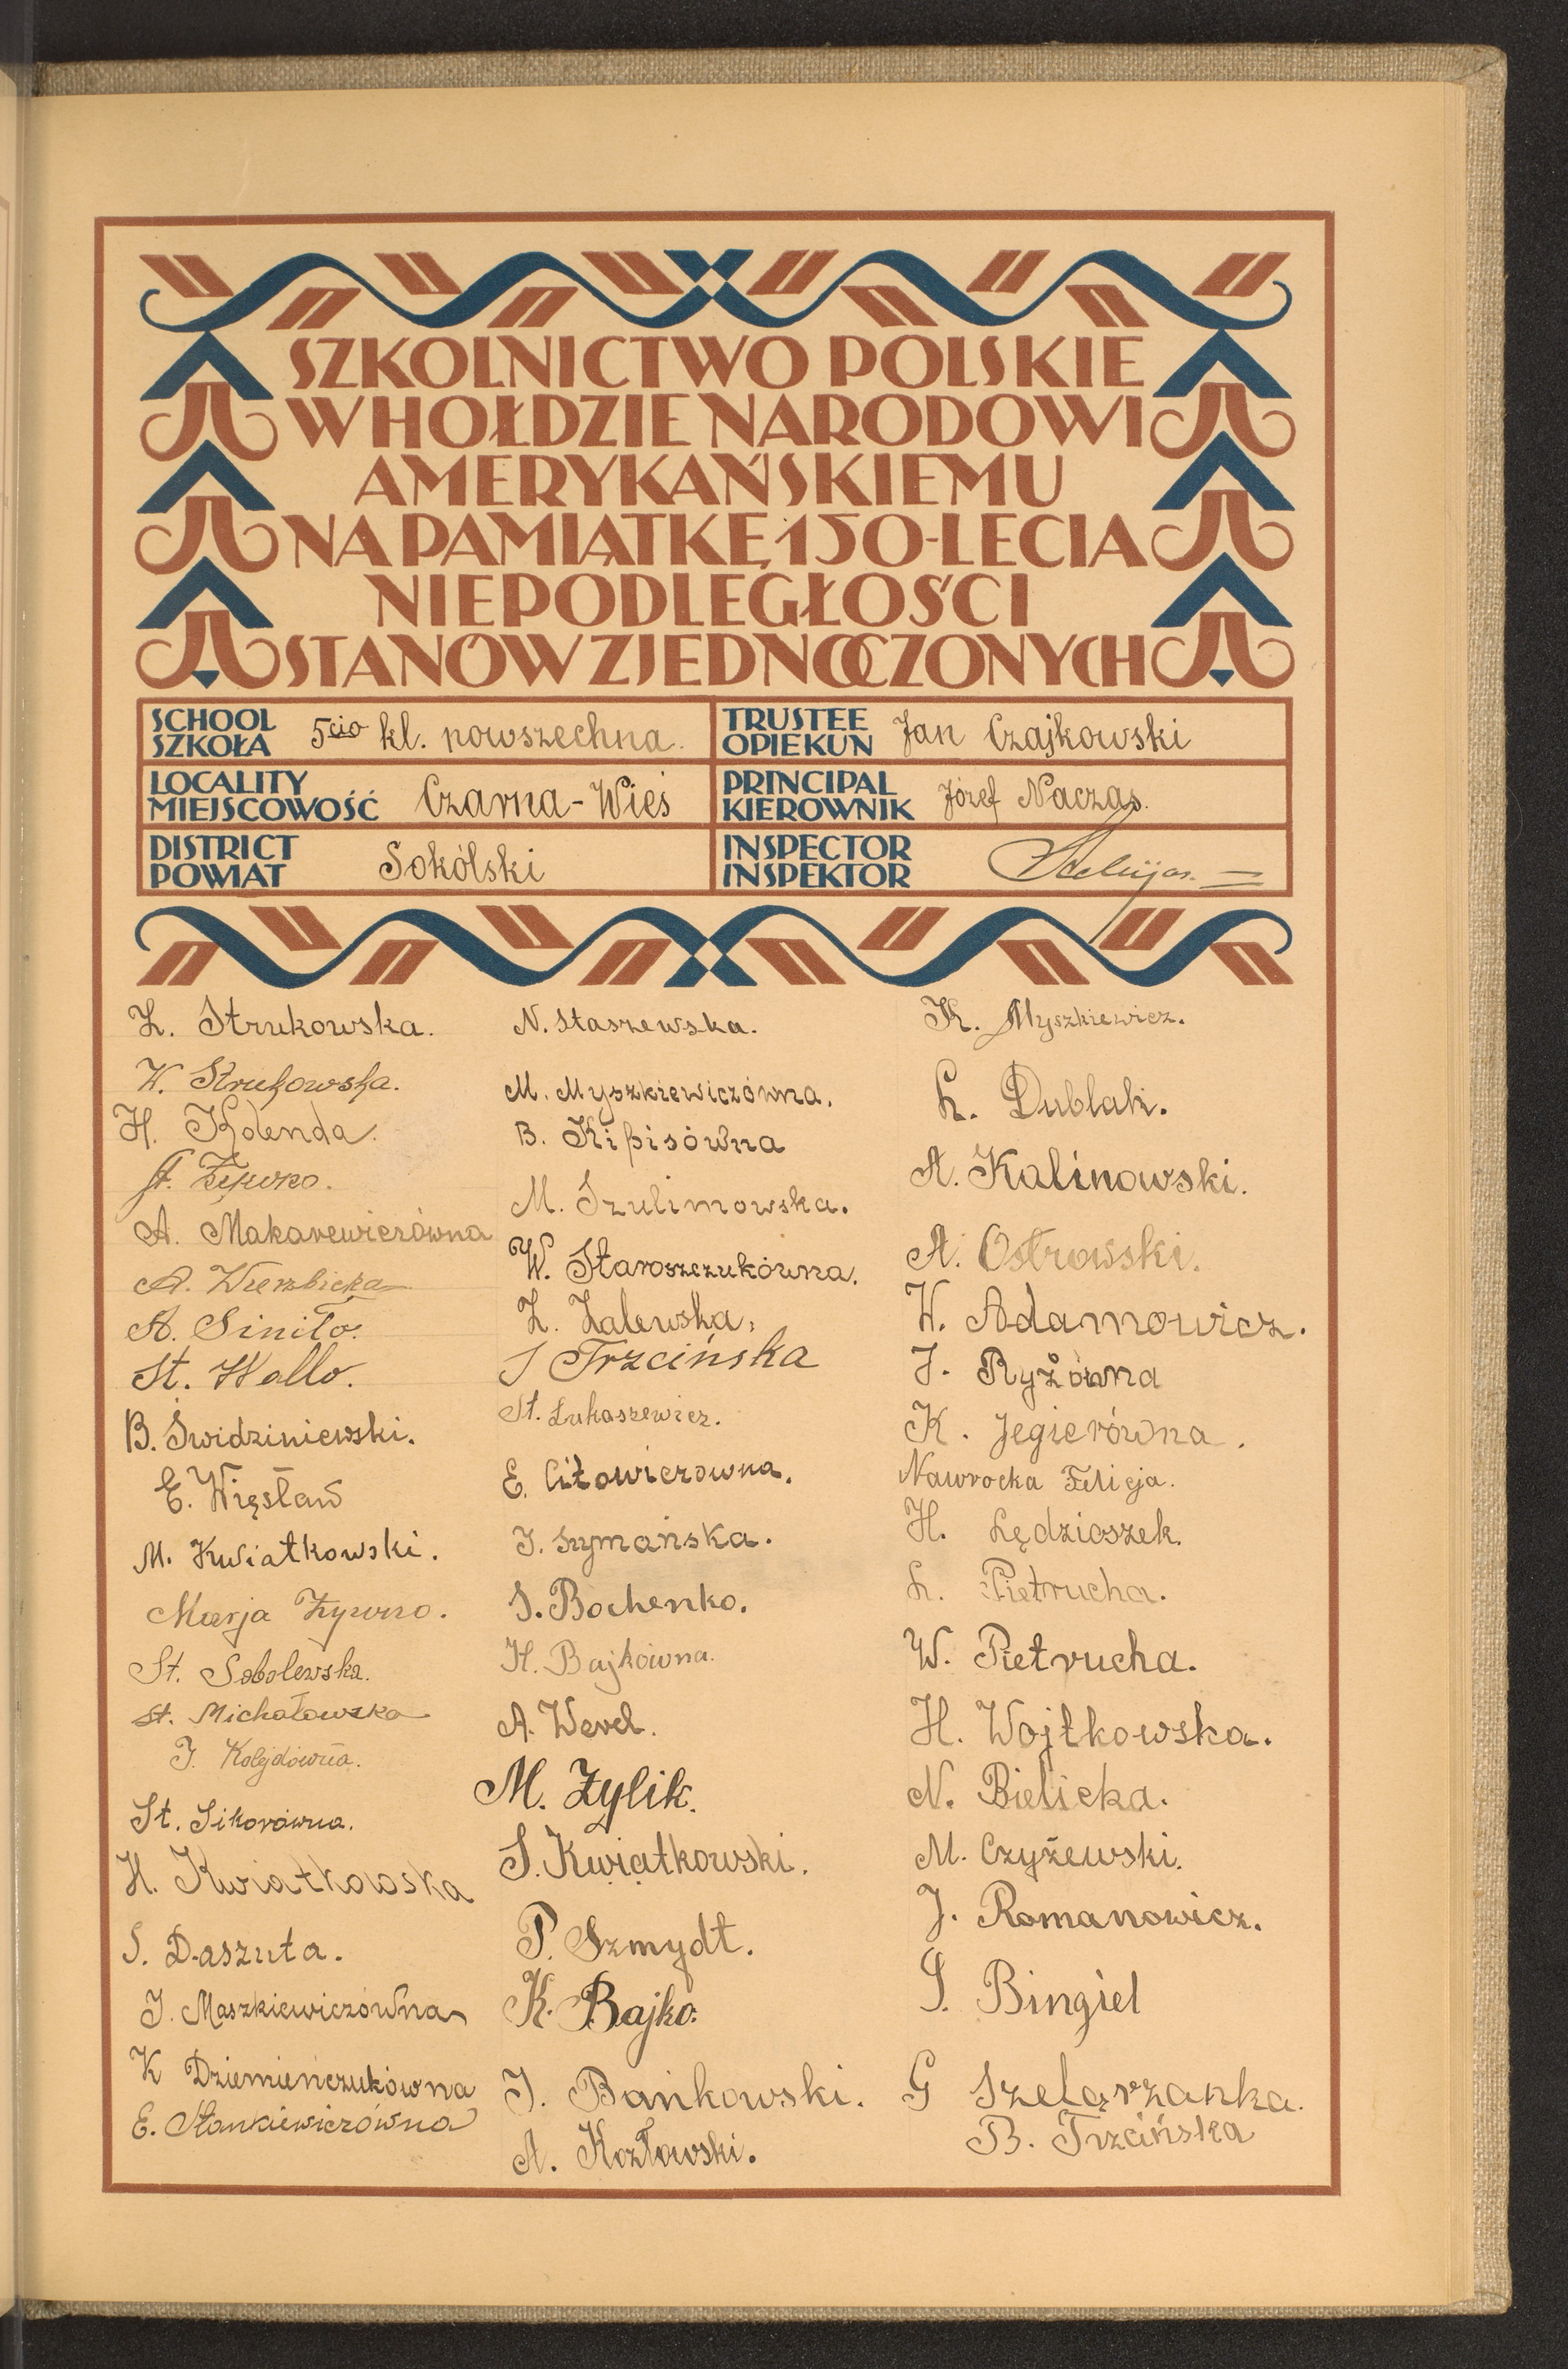 SZKOLNICTWO POLSKIE
W HOŁDZIE NARODOWI
AMERYKAŃSKIEMU
NA PAMIĄTKĘ 150-LECIA
NIEPODLEGŁOŚCI
STANÓW ZJEDNOCZONYCH
SCHOOL
SZKOŁA
5cio kl. powszechna.
TRUSTEE
OPIEKUN
Jan Czajkowski
LOCALITY
MIEJSCOWOŚĆ
Czarna-Wieś
PRINCIPAL
KIEROWNIK
Józef Naczas.
DISTRICT
POWIAT
Sokólski
INSPECTOR
INSPEKTOR
Z. Strukowska.
W. Strukowska.
H. Kolenda.
A. Makarewiczówna
A. Wierzbicka
A. Siniło.
St. Wallo.
B. Świdziniewski.
E. Więsław
M. Kwiatkowski.
Marja Żywno.
St. Sobolewska.
St. Michałowska
J. Kolejdówna.
St. Sikorówna.
H. Kwiatkowska
S. Daszuta.
J. Maszkiewiczówna
K Dziemieńczukówna
E. Stankiewiczówna
N. Staszewska.
M. Myszkiewiczówna.
B. Kipisówna
M. Szulimowska.
W. Staroszczukówna.
Z. Zalewska.
J Trzcińska
St. Łukaszewicz.
E. Citowiczówna.
J. Szymańska.
S. Bochenko.
H. Bajkówna.
A. Werel.
M. Zylik.
S. Kwiatkowski.
P. Szmydt.
K. Bajko.
J. Bańkowski.
A. Kozłowski.
K. Myszkiewicz.
L. Dublak.
A. Kalinowski.
A. Ostrowski.
W. Adamowicz.
J. Ryżówna
K. Jegierówna.
Nawrocka Felicja.
H. Lędzioszek.
L. Pietrucha.
W. Pietrucha.
H. Wojtkowska.
N. Bielicka.
M. Czyżewski.
J. Romanowicz.
S. Bingiel
G Szelązanka.
B. Trzcińska